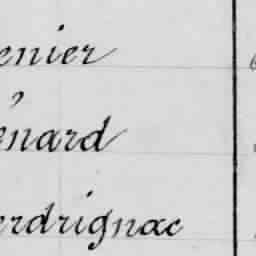 enier
énard
erdrignac